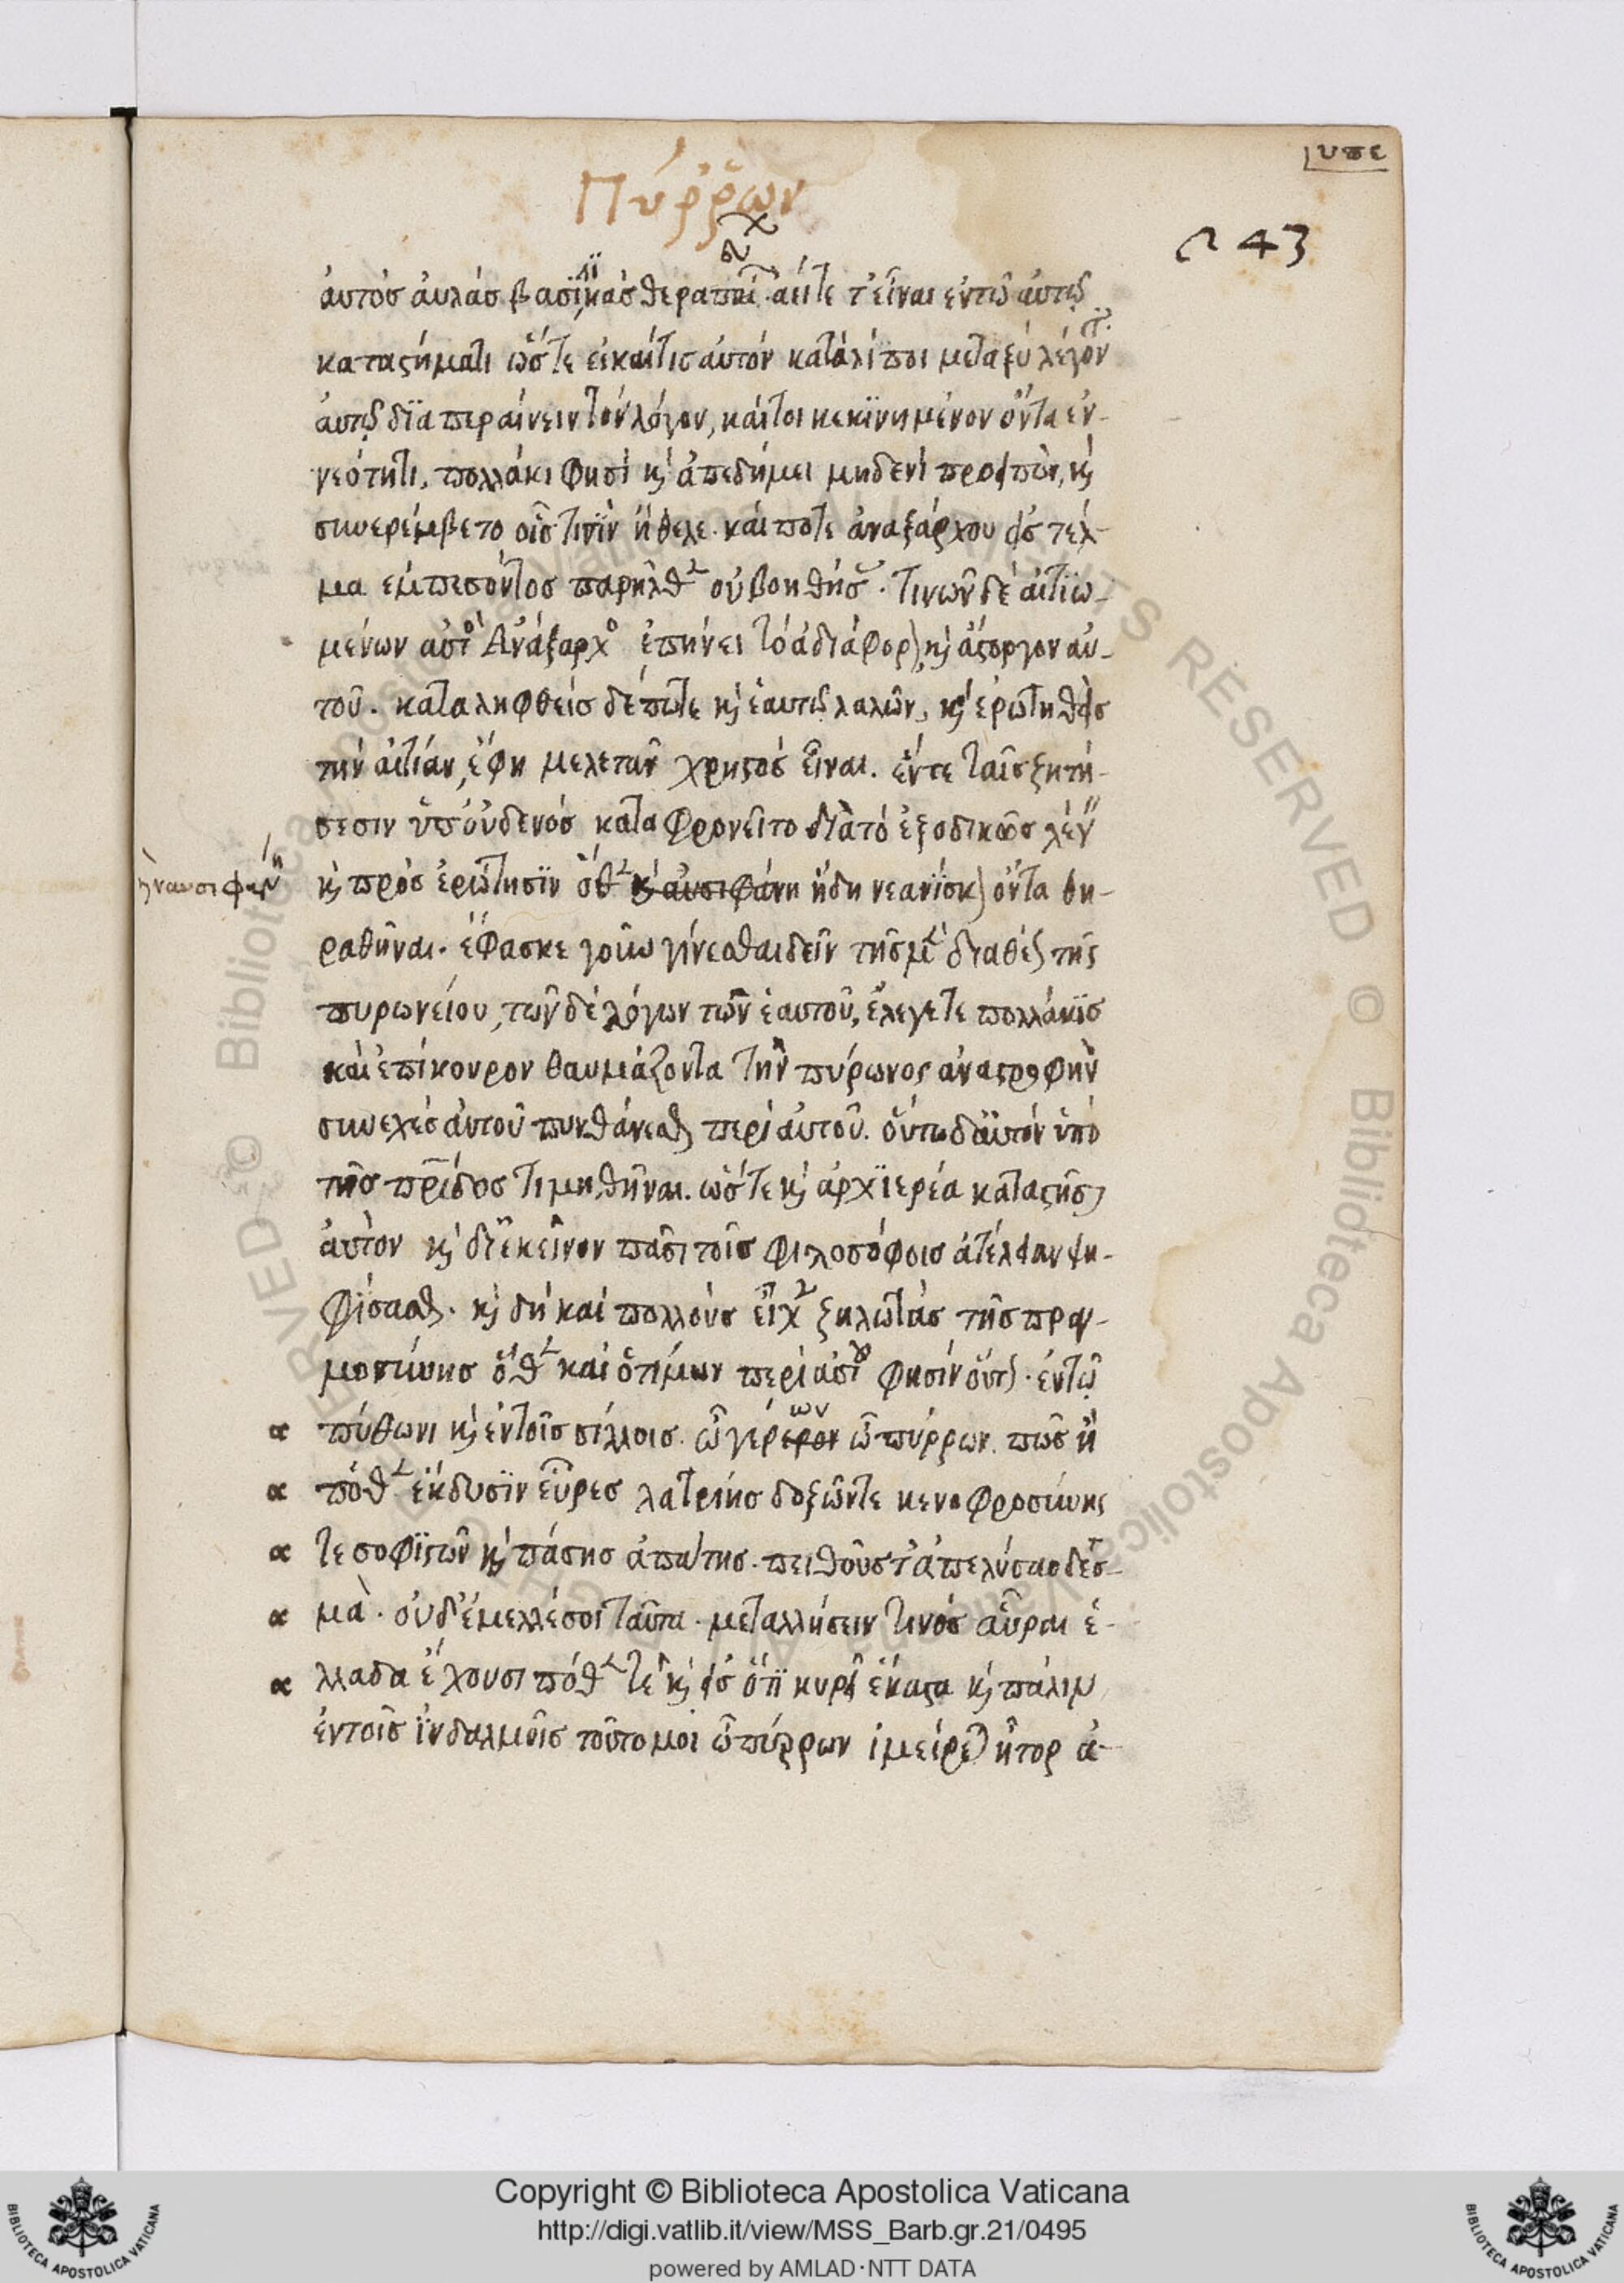 υπε
Πύῤῥων
243
ἀυτὸσ ἀυλὰσ βασιλϊκὰσ θεραπ ἀείτε τ' εἶναι ἐντῶ ἀυτῶ
καταστήματι ὥστε εἰκαίτισ ἀυτὸν καταλίποι μεταξὺ λέγοντ
ἀυτῶ δϊαπεραίνειν τὸν λόγον, κάιτοι κεκϊνημένον ὄντα ἐν-
νεότητι, πολλάκι φησὶ κὶ ἀπεδήμει μηδενὶ προειπὼν, κὶ
συνερέμβετο οἷστισϊν ἤθελε. κάιποτε ἀναξάρχου εἰσ τέλ-
μα ἐμπεσόντοσ παρῆλθεν οὐ βοηθήσασ. τινῶν δὲ ἀιτϊω-
μένων αὐτὸσ Ἀνάξαρχοσ ἐπήνει τὸ ἀδιάφορον κὶ ἄστοργον αὐ-
τοῦ. καταληφθεὶσ δέποτε κὶ ἑαυτῶ λαλῶν, κὶ ἐρωτηθεὶσ
τὴν ἀιτίαν, ἔφη μελετᾶν χρηστὸσ εἶναι. ἔντε ταῖσ ζητή-
σεσιν ὑπ' ὀυδενὸσ καταφρονεῖτο διὰτὸ ἐξοδικῶσ λέγειν
κὶ ναυσιφάνην
κὶ πρὸσ ἐρώτησϊν ὅθεν κὶ αυσιφάνη ἤδη νεανίσκον ὄντα θη-
ραθῆναι. ἔφασκε γοῦν γίνεσθαι δεῖν τῆσ μὲν διαθέσεωσ τῆς
πυρωνείου, τῶν δὲ λόγων τῶν ἑαυτοῦ, ἔλεγετε πολλάκϊσ
κὰι ἐπίκουρον θαυμάζοντα τὴν πύρωνος ἀναστροφὴν
συνεχὲσ ἀυτοῦ πυνθάνεσθαι περὶ ἀυτοῦ. ὅυτω δ' ἀυτὸν ὑπὸ
τῆσ πρίδοσ τιμηθῆναι. ὥστε κὶ ἀρχϊερέα καταστῆσαι
ἀυτὸν κὶ δϊ' ἐκεῖνον πᾶσι τοῖσ φιλοσόφοισ ἀτέλειαν ψη-
φίσασθαι. κὶ δὴ καὶ πολλοὺσ εἶχεν ζηλωτὰσ τῆσ πραγ-
μοσύνησ ὅθεν καὶ ὁ τίμων περὶ αὐτοῦ φησὶν οὕτως. ἐντῶ
πύθωνι κὶ ἐντοῖσ σίλλοισ. ὦ γέρερον ων ὦ πύρρων. πῶσ ἢ
πόθεν ἔκδυσϊν εὗρεσ λατρείησ δοξῶντε κενοφροσύνης
τε σοφϊστῶν κὶ πάσησ ἀπάτησ. πειθοῦσ τ' ἀπελύσαο δεσ-
μὰ. ὀυδ' ἐμελλέσοι ταῦτα. μεταλλήσειν τινὸσ αὖραι ἑ-
λλαδα ἔχουσι πόθεν τὲ κὶ εἰσ ὅτϊ κυρεῖ ἕκαστα κὶ πάλιν
ἐντοῖσ ϊνδαλμοῖσ τοῦτο μοι ὦ πύρρων ἱμείρεται ἦτορ ἀ-
Copyright © Biblioteca Apostolica Vaticana
http://digi.vatlib.it/view/MSS_Barb.gr.21/0495
powered by AMLAD·NTT DATA
BIBLIOTECA APOSTOLICA VATICANA
BIBLIOTECA APOSTOLICA VATICANA